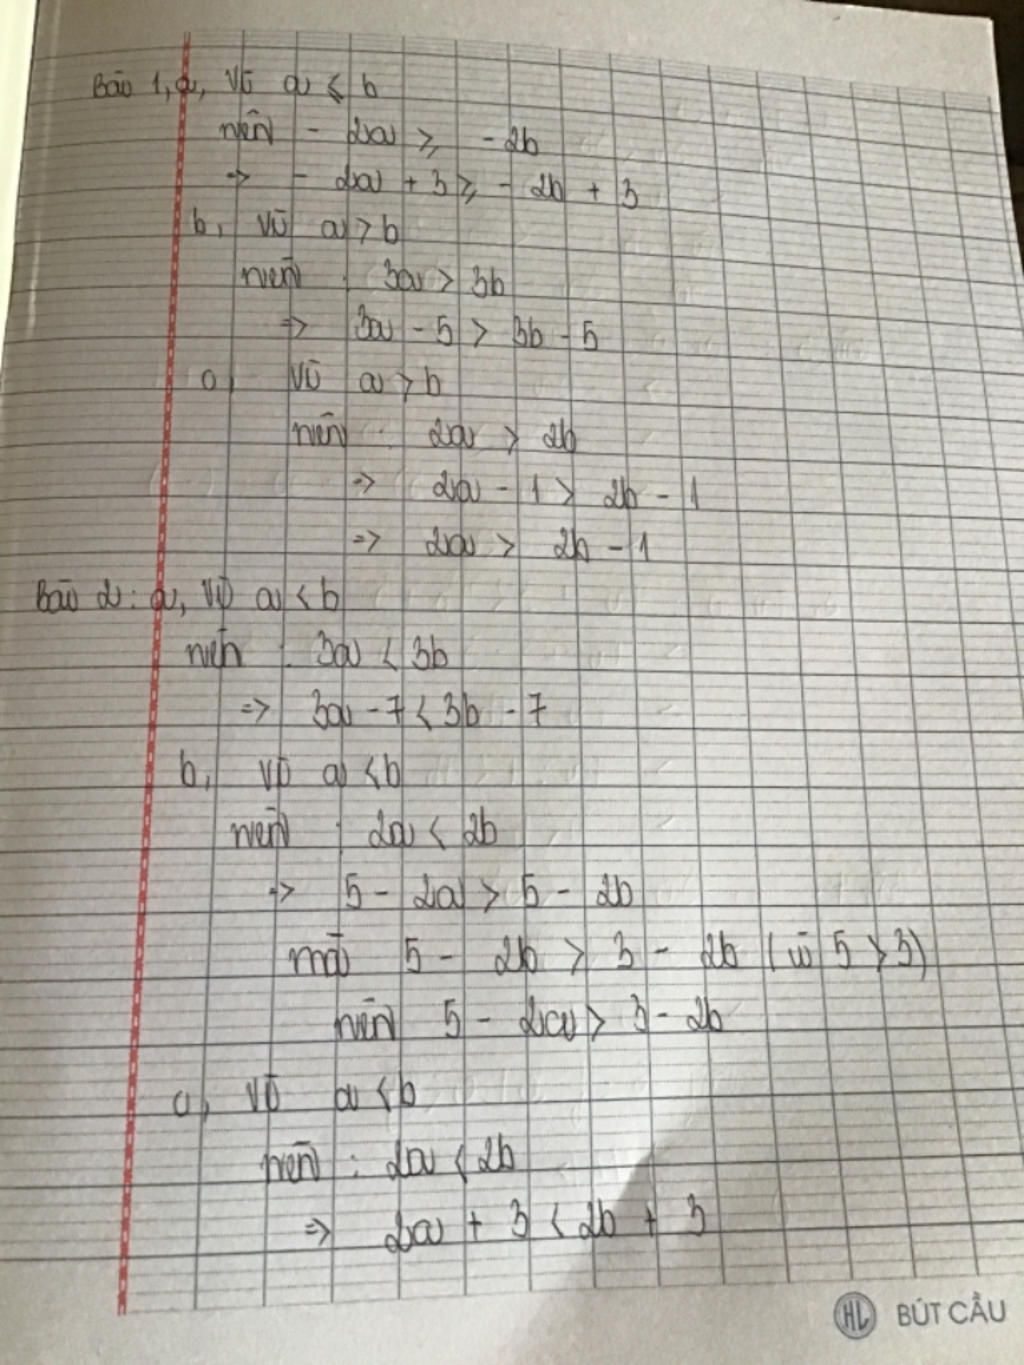 Bài 1, a, Vì a ≤ b
nên - 2a ≥ - 2b
=> - 2a + 3 ≥ - 2b + 3
b, Vì a > b
nên : 3a > 3b
=> 3a - 5 > 3b - 5
c, Vì a > b
nên : 2a > 2b
=> 2a - 1 > 2b - 1
=> 2a > 2b - 1
Bài 2 : a, Vì a < b
nên : 3a < 3b
=> 3a - 7 < 3b - 7
b, Vì a < b
nên : 2a < 2b
=> 5 - 2a > 5 - 2b
mà 5 - 2b > 3 - 2b ( vì 5 > 3)
nên 5 - 2a > 3 - 2b
c, Vì a < b
nên : 2a < 2b
=> 2a + 3 < 2b + 3
HL BÚT CẦU